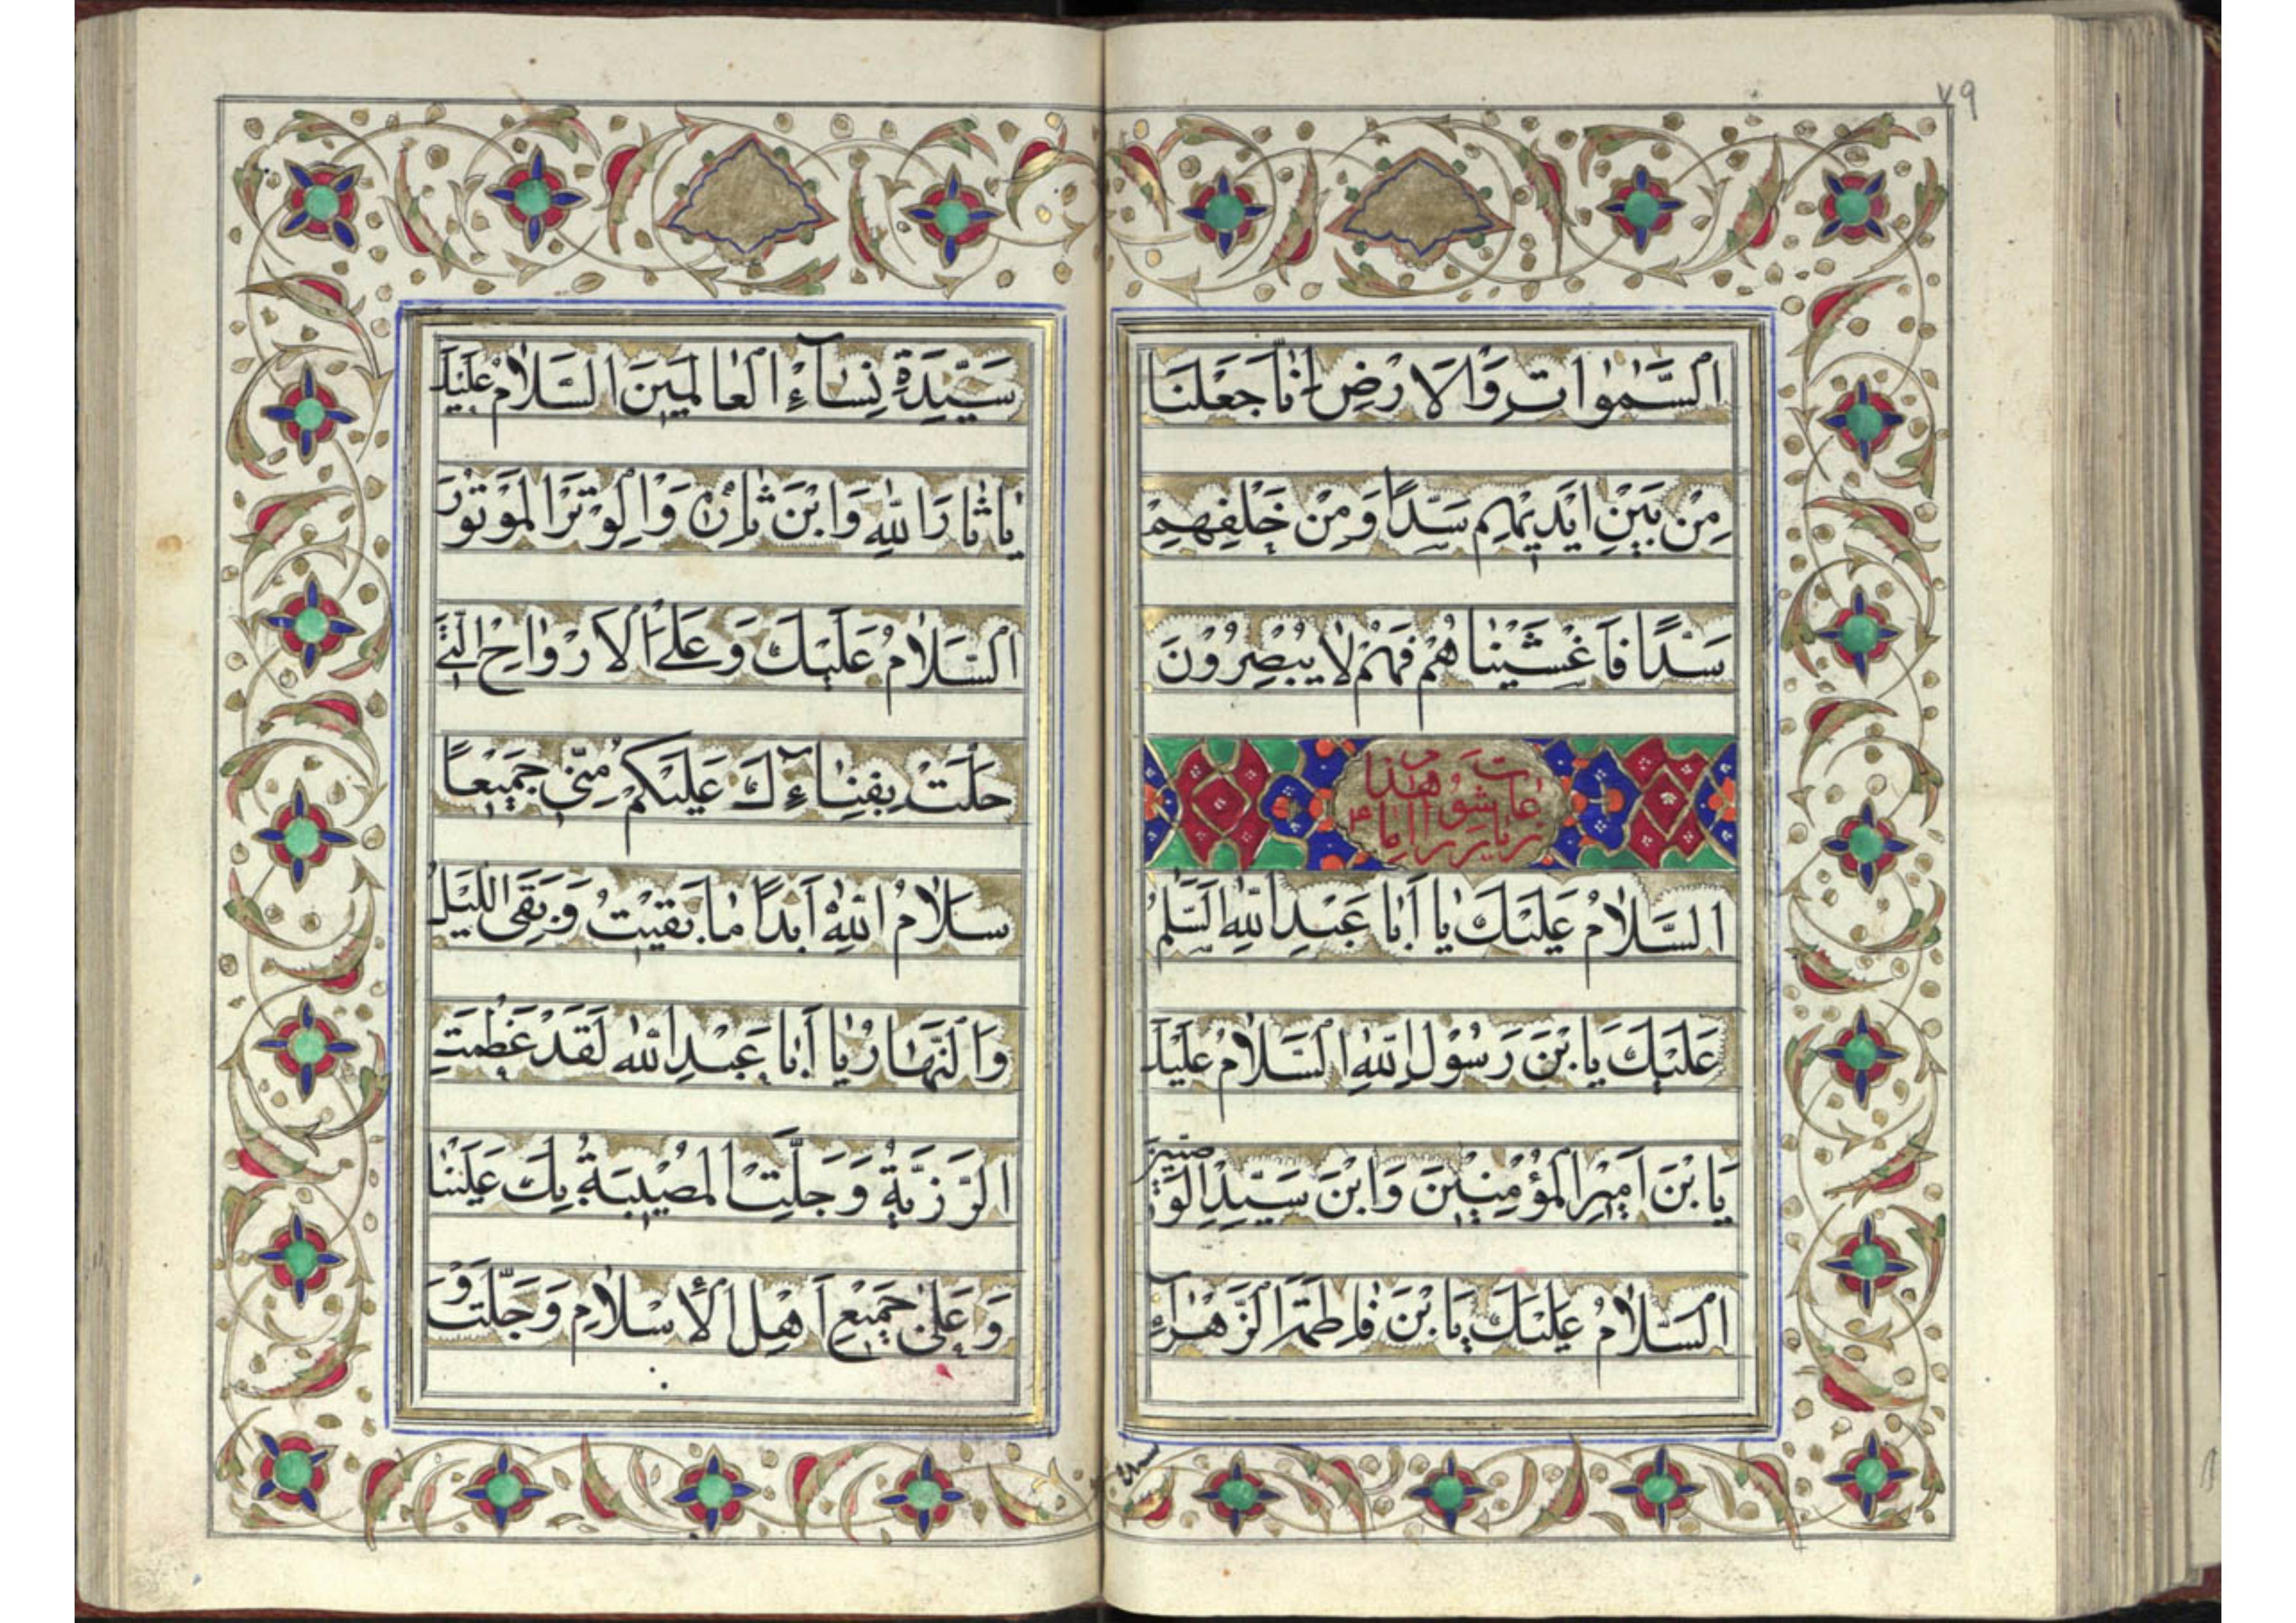 ٧٩
السَّمٰوٰاتِ وَالْاَرْضِ اِنّٰا جَعَلْنَا
مِنْ بَيْنِ اَيْدِيْهِم سَدًّا وَمِنْ خَلْفِهِمْ
سَدًّا فَاَغْشَيْنٰاهُمْ فَهُمْ لٰا يُبْصِرُوْنَ
هٰذا
زيارت عاشورا
السَّلٰامُ عَلَيْكَ يٰا أَبٰا عَبْدِ اللّٰهِ السَّلٰمُ
عَلَيْكَ يَا بْنَ رَسُوْلِ اللّٰهِ السَّلٰامُ عَلَيْكَ
يَا بْنَ اَمِيْرِ الْمُؤْمِنِيْنَ وَابْنَ سَيِّدِ الْوَصِيّينَ
السَّلٰامُ عَلَيْكَ يَا بْنَ فٰاطِمَةَ الزَّهْرٰآءِ
سَيِّدَةِ نِسٰآءِ الْعٰالَمِيَنَ السَّلٰامُ عَلَيْكَ
يٰا ثٰارَ اللّٰهِ وَابْنَ ثٰارِهِ وَالْوِتْرَ الْمَوْتُوْرَ
السَّلٰامُ عَلَيْكَ وَعَلَى الْاَرْوٰاحِ الَّتِيْ
حَلَّتْ بِفِنٰآءِكَ عَلَيْكُمْ مِنّيْ جَمِيْعاً
سَلٰامُ اللّٰهِ اَبَدًا مٰا بَقيْتُ وَبَقِىَ اللَّيْلُ
وَالنَّهٰارُ يٰا أَبٰا عَبْدِ اللّٰه لَقَدْ عَظُمَتِ
الرَّزِيَّةُ وَجَلَّتِ الْمُصِيْبَةُ بِكَ عَلَيْنٰا
وَعَلىٰ جَمِيْعِ اَهْلِ الْأِسْلٰامِ وَجَلَّتْ وَ